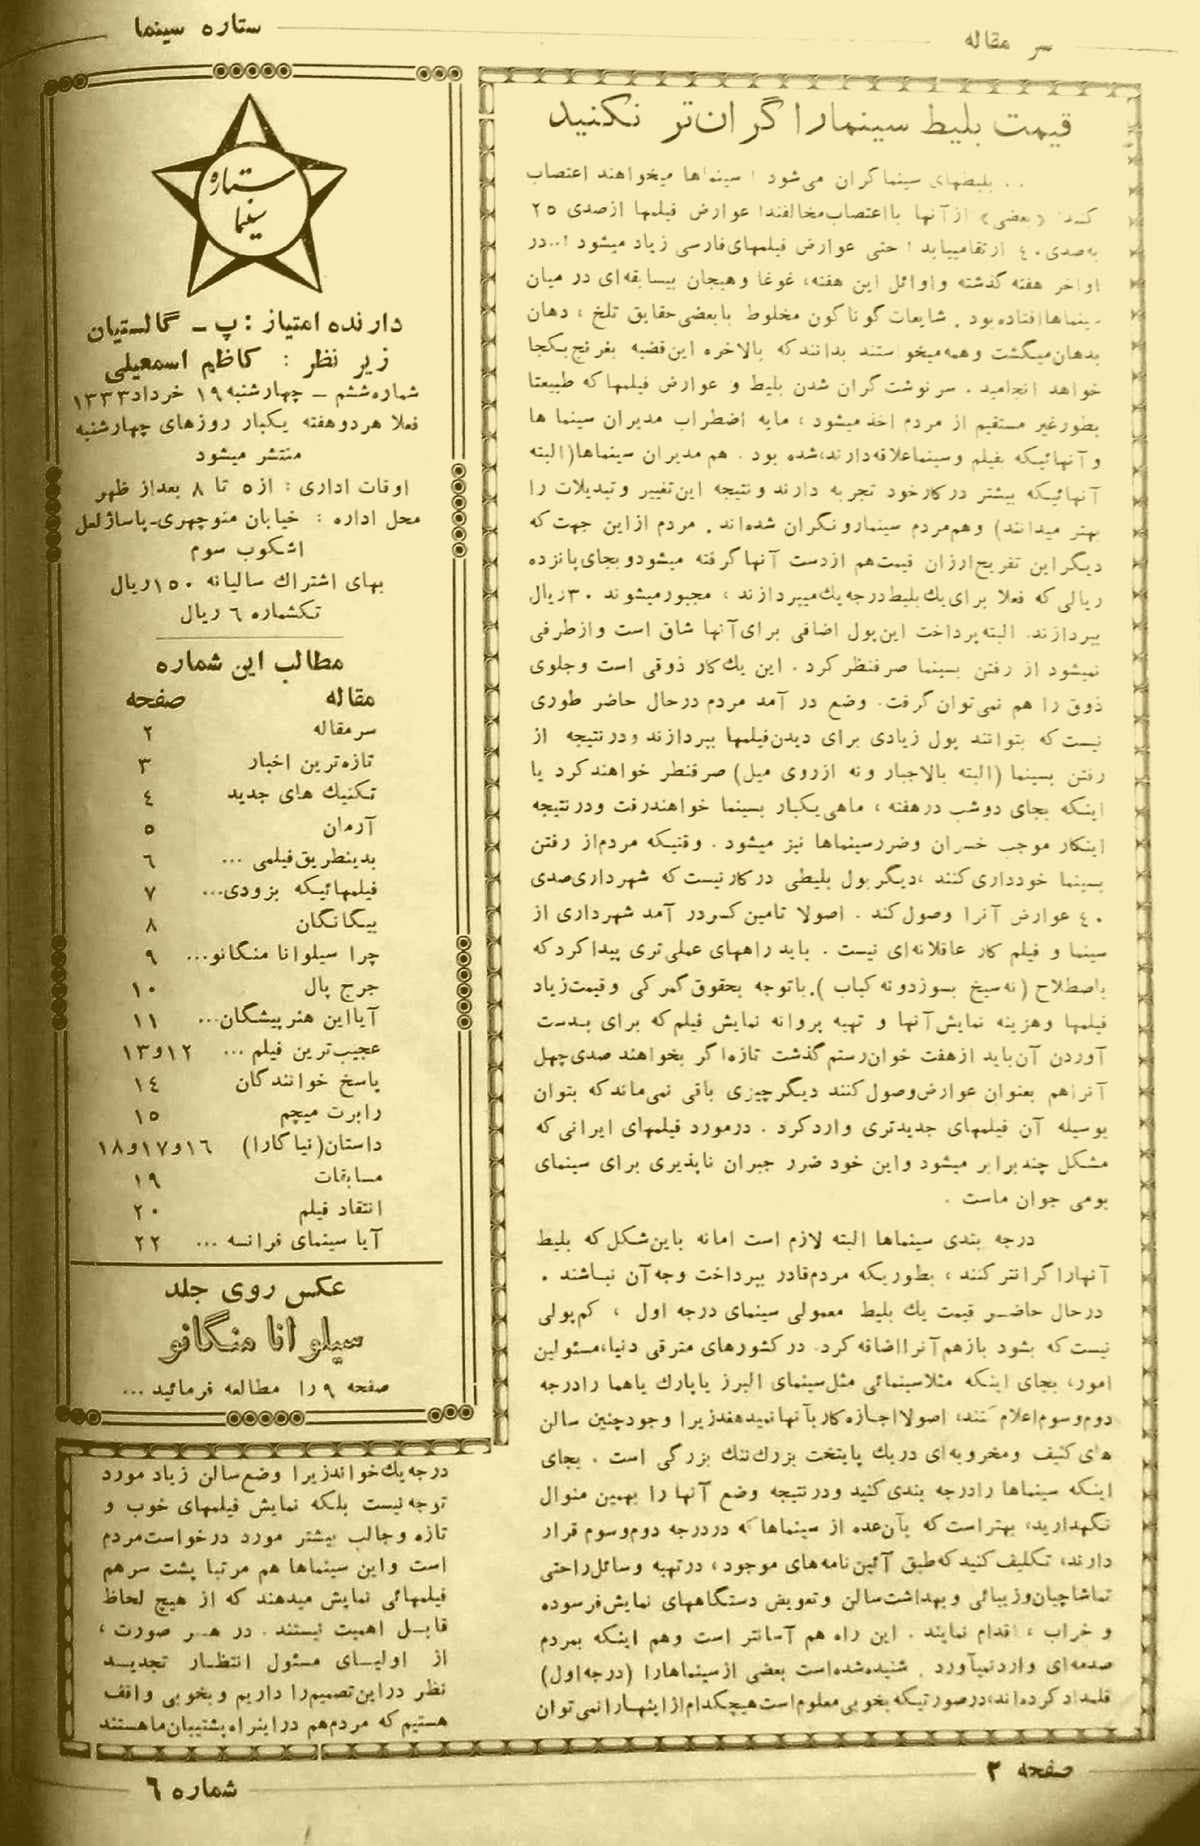 سر مقاله
ستاره سینما
قیمت بلیط سینما را گران‌تر نکنید
.. بلیطهای سینما گران می‌شود ! سینماها میخواهند اعتصاب
کنند! «بعضی» از آنها با اعتصاب مخالفند! عوارض فیلمها از صدی ۲۵
به صدی ۴۰ ارتقا مییابد ! حتی عوارض فیلمهای فارسی زیاد میشود !.. در
اواخر هفته گذشته و اوائل این هفته، غوغا و هیجان بیسابقه‌ای در میان
سینماها افتاده بود . شایعات گوناگون مخلوط با بعضی حقایق تلخ ، دهان
بدهان میگشت و همه میخواستند بدانند که بالاخره این قضیه بغرنج بکجا
خواهد انجامید . سرنوشت گران شدن بلیط و عوارض فیلمها که طبیعتا
بطور غیر مستقیم از مردم اخذ میشود ، مایه اضطراب مدیران سینما ها
و آنهائیکه بفیلم و سینما علاقه دارند، شده بود . هم مدیران سینماها (البته
آنهائیکه بیشتر در کار خود تجربه دارند و نتیجه این تغییر و تبدیلات را
بهتر میدانند) و هم مردم سینما رو نگران شده‌اند . مردم از این جهت که
دیگر این تفریح ارزان قیمت هم از دست آنها گرفته میشود و بجای پانزده
ریالی که فعلا برای یك بلیط درجه یك میپردازند ، مجبور میشوند ۳۰ ریال
بپردازند. البته پرداخت این پول اضافی برای آنها شاق است و از طرفی
نمیشود از رفتن بسینما صرفنظر کرد . این یك کار ذوقی است و جلوی
ذوق را هم نمی‌توان گرفت. وضع در آمد مردم در حال حاضر طوری
نیست که بتوانند پول زیادی برای دیدن فیلمها بپردازند و در نتیجه از
رفتن بسینما (البته بالاجبار و نه از روی میل) صرفنظر خواهند کرد یا
اینکه بجای دو شب در هفته ، ماهی یکبار بسینما خواهند رفت و در نتیجه
اینکار موجب خسران و ضرر سینماها نیز میشود . وقتیکه مردم از رفتن
بسینما خودداری کنند ، دیگر پول بلیطی در کار نیست که شهرداری صدی
۴۰ عوارض آنرا وصول کند . اصولا تامین کسر در آمد شهرداری از
سینما و فیلم کار عاقلانه‌ای نیست . باید راههای عملی تری پیدا کرد که
باصطلاح (نه سیخ بسوزد و نه کباب ). با توجه بحقوق گمرکی و قیمت زیاد
فیلمها و هزینه نمایش آنها و تهیه پروانه نمایش فیلم که برای بدست
آوردن آن باید از هفت خوان رستم گذشت تازه اگر بخواهند صدی چهل
آنرا هم بعنوان عوارض وصول کنند دیگر چیزی باقی نمی‌ماند که بتوان
بوسیله آن فیلمهای جدیدتری وارد کرد . در مورد فیلمهای ایرانی که
مشکل چند برابر میشود و این خود ضرر جبران ناپذیری برای سینمای
بومی جوان ماست .
درجه بندی سینماها البته لازم است اما نه باین شکل که بلیط
آنها را گرانتر کنند ، بطوریکه مردم قادر بپرداخت وجه آن نباشند .
در حال حاضر قیمت یك بلیط معمولی سینمای درجه اول ، کم پولی
نیست که بشود باز هم آنرا اضافه کرد. در کشورهای مترقی دنیا، مسئولین
امور، بجای اینکه مثلا سینمائی مثل سینمای البرز یا پارك یا هما را درجه
دوم و سوم اعلام کنند، اصولا اجازه کار بآنها نمیدهند زیرا وجود چنین سالن
های کثیف و مخروبه‌ای در یك پایتخت بزرك ننك بزرگی است . بجای
اینکه سینماها را درجه بندی کنید و در نتیجه وضع آنها را بهمین منوال
نگهدارید، بهتر است که بآن عده از سینماها که در درجه دوم و سوم قرار
دارند، تکلیف کنید که طبق آئین نامه‌های موجود ، در تهیه وسائل راحتی
تماشاچیان و زیبائی و بهداشت سالن و تعویض دستگاههای نمایش فرسوده
و خراب ، اقدام نمایند . این راه هم آسانتر است و هم اینکه بمردم
صدمه‌ای وارد نمیآورد . شنیده شده است بعضی از سینماها را (درجه اول)
قلمداد کرده‌اند، در صورتیکه بخوبی معلوم است هیچکدام از اینها را نمی توان
درجه یك خواند زیرا وضع سالن زیاد مورد
توجه نیست بلکه نمایش فیلمهای خوب و
تازه و جالب بیشتر مورد درخواست مردم
است و این سینماها هم مرتبا پشت سر هم
فیلمهائی نمایش میدهند که از هیچ لحاظ
قابل اهمیت نیستند . در هر صورت ،
از اولیای مسئول انتظار تجدید
نظر در این تصمیم را داریم و بخوبی واقف
هستیم که مردم هم در اینراه پشتیبان ما هستند
ستاره
سینما
دارنده امتیاز : پ ـ گالستیان
زیر نظر : کاظم اسمعیلی
شماره ششم ـ چهارشنبه ۱۹ خرداد ۱۳۳۳
فعلا هر دو هفته یکبار روزهای چهارشنبه
منتشر میشود
اوقات اداری : از ۵ تا ۸ بعد از ظهر
محل اداره : خیابان منوچهری ـ پاساژ لعل
اشکوب سوم
بهای اشتراك سالیانه ۱۵۰ ریال
تکشماره ۶ ریال
مطالب این شماره
مقاله صفحه
سر مقاله ۲
تازه ترین اخبار ۳
تکنیك های جدید ۴
آرمان ۵
بدینطریق فیلمی ... ۶
فیلمهائیکه بزودی... ۷
بیگانگان ۸
چرا سیلوانا منگانو... ۹
جرج پال ۱۰
آیا این هنرپیشگان... ۱۱
عجیب‌ترین فیلم ... ۱۲و۱۳
پاسخ خوانندگان ۱۴
رابرت میچم ۱۵
داستان (نیاگارا) ۱۶و۱۷و۱۸
مسابقات ۱۹
انتقاد فیلم ۲۰
آیا سینمای فرانسه ... ۲۲
عکس روی جلد
سیلوانا منگانو
صفحه ۹ را مطالعه فرمائید ...
صفحه ۲
شماره ۶